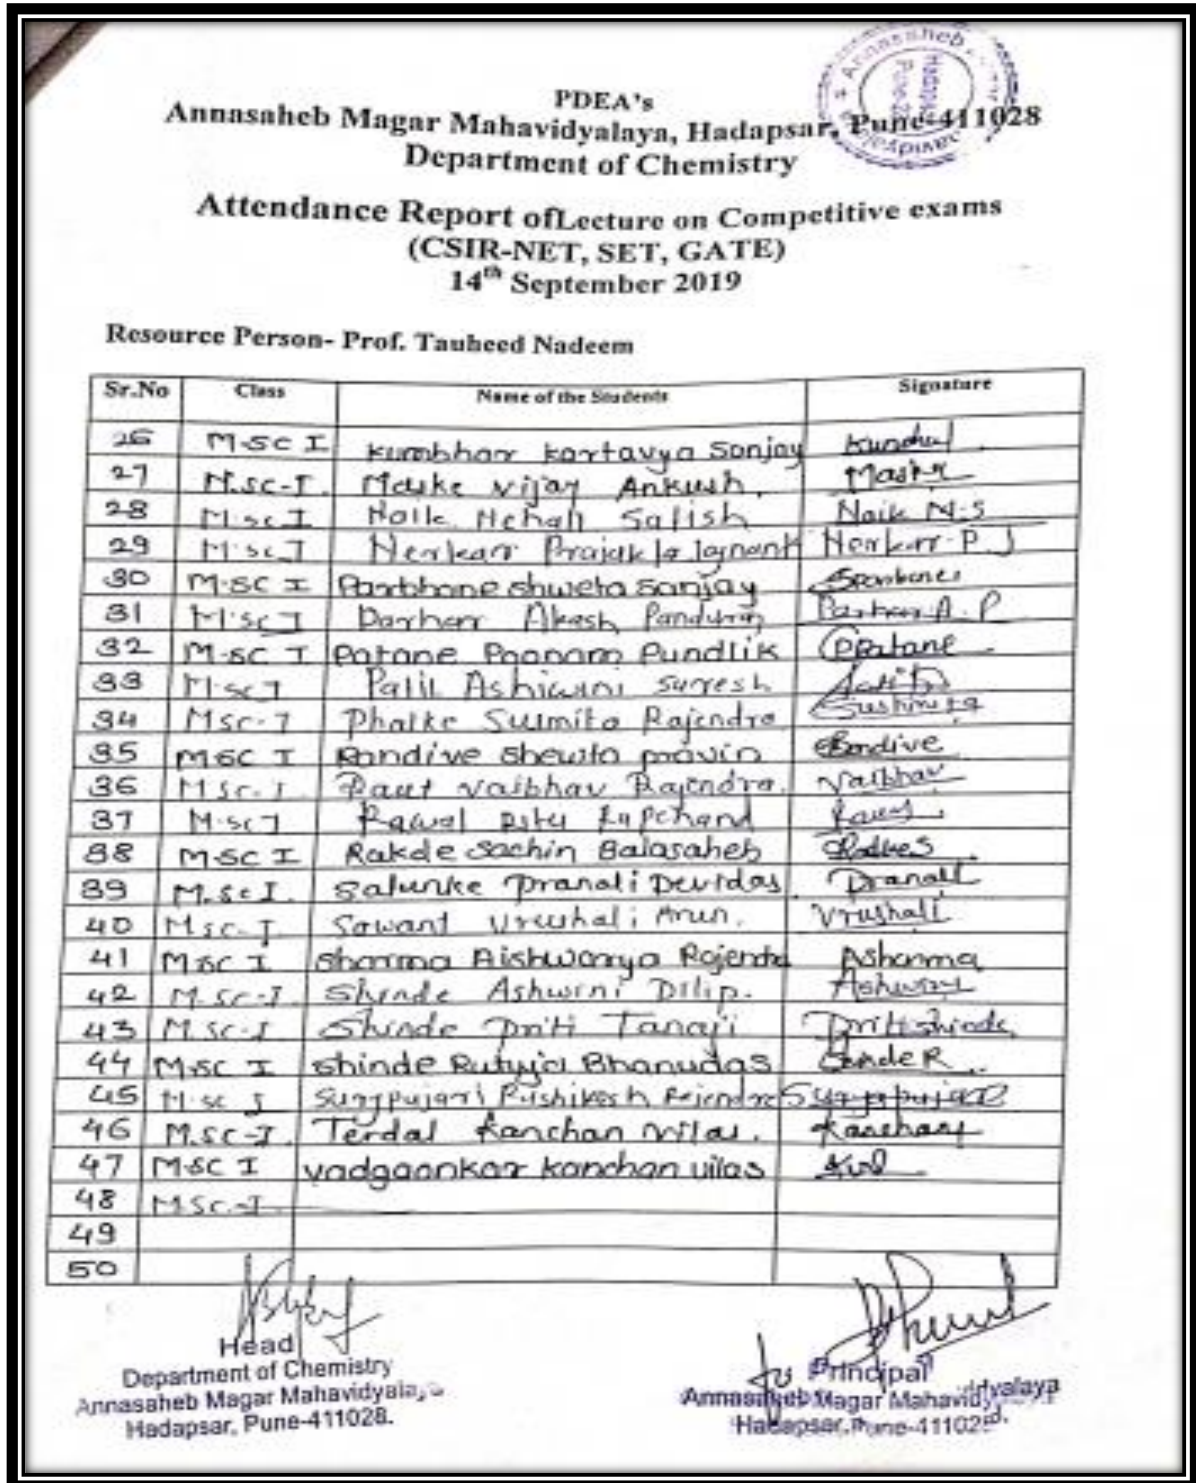 Annasaheb
Hadapsar
Pune-28
PDEA's
Annasaheb Magar Mahavidyalaya, Hadapsar, Pune-411028
Department of Chemistry
Attendance Report ofLecture on Competitive exams
(CSIR-NET, SET, GATE)
14th September 2019
Resource Person- Prof. Tauheed Nadeem
Sr.No Class Name of the Students Signature
26 M-SC I kumbhar kartavya Sanjay
27 M.sc-I. Maske vijay Ankush. Maske
28 M.sc I Naik Nehali Satish Naik N.S
29 M.sc I Nerkar Prajakta Nerkar P.J
30 M-SC I Parbhane shweta sanjay
31 M.sc I Darhar Akash Pandurang Darhar A.P
32 M-SC I Patane Poonam Pundlik PPatane
33 M.sc I Patil Ashiwini suresh
34 Msc-I Phalke Sushmita Rajendra Sushmita
35 MSC I Randive shewta pravin Randive
36 M.sc-I Raut vaibhav Rajendra. Vaibhav
37 M.sc I Rawal Ritu Rupchand
38 M-SC I Rakde Sachin Balasaheb
39 M.sc I. Salunke Pranali Devidas Pranali
40 M.sc-I. Sawant Vrushali Arun. Vrushali
41 M-SC I Sharma Aishwarya Rajendra Asharma
42 M.sc-I. Shinde Ashwini Dilip. Ashwini
43 M.sc-I Shinde Priti Tanaji Pritishinde
44 M-SC I Shinde Rutuja Bhanudas
45 M.sc I Surypujari Rushikesh Rajendra
46 M.sc-I. Terdal Kanchan vilas. Kanchan
47 M-SC I vadgaonkar kanchan vilas
48 M.sc-I
49
50
Head
Department of Chemistry
Annasaheb Magar Mahavidyalaya
Hadapsar, Pune-411028.
Principal
Annasaheb Magar Mahavidyalaya
Hadapsar, Pune-411028.